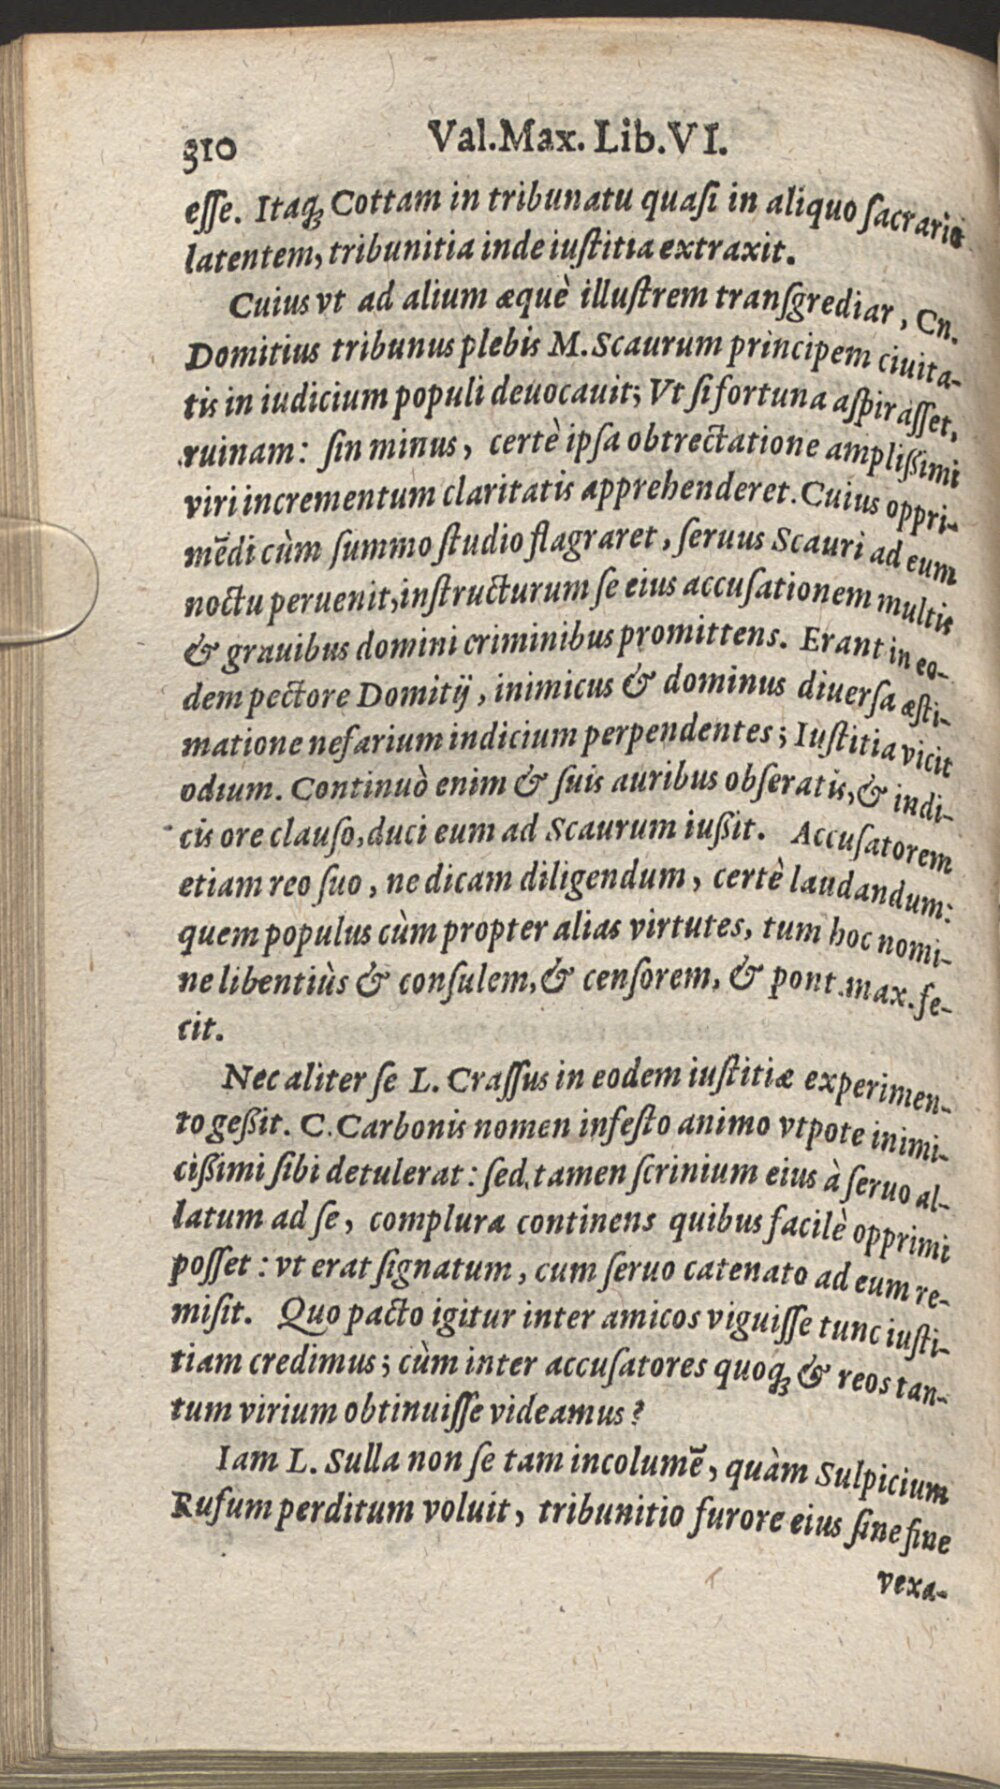 310 Val. Max. Lib. VI.
eſſe. Itaq; Cottam in tribunatu quaſi in aliquo ſacrario
latentem, tribunitia inde iuſtitia extraxit.
Cuius vt ad alium æquè illuſtrem tranſgrediar, Cn.
Domitius tribunus plebis M. Scaurum principem ciuita-
tis in iudicium populi deuocauit; Vt ſi fortuna aſpiraſſet,
ruinam: ſin minus, certè ipſa obtrectatione ampliſſimi
viri incrementum claritatis apprehenderet. Cuius oppri-
mēdi cùm ſummo ſtudio flagraret, ſeruus Scauri ad eum
noctu peruenit, inſtructurum ſe eius accuſationem multis
& grauibus domini criminibus promittens. Erant in eo-
dem pectore Domitij, inimicus & dominus diuerſa æſti-
matione nefarium indicium perpendentes; Iuſtitia vicit
odium. Continuò enim & ſuis auribus obſeratis, & indi-
cis ore clauſo, duci eum ad Scaurum iußit. Accuſatorem
etiam reo ſuo, ne dicam diligendum, certè laudandum:
quem populus cùm propter alias virtutes, tum hoc nomi-
ne libentiùs & conſulem, & cenſorem, & pont. max. fe-
cit.
Nec aliter ſe L. Craſſus in eodem iuſtitiæ experimen-
to geßit. C. Carbonis nomen infeſto animo vtpote inimi-
cißimi ſibi detulerat: ſed tamen ſcrinium eius à ſeruo al-
latum ad ſe, complura continens quibus facilè opprimi
poſſet: vt erat ſignatum, cum ſeruo catenato ad eum re-
miſit. Quo pacto igitur inter amicos viguiſſe tunc iuſti-
tiam credimus; cùm inter accuſatores quoq; & reos tan-
tum virium obtinuiſſe videamus?
Iam L. Sulla non ſe tam incolumē, quàm Sulpicium
Rufum perditum voluit, tribunitio furore eius ſine fine
vexa-